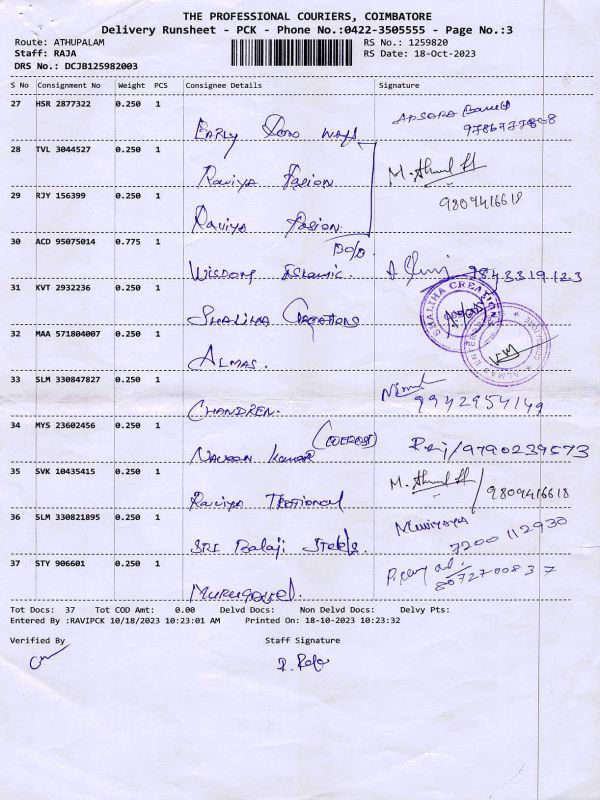 THE PROFESSIONAL COURIERS, COIMBATORE
Delivery Runsheet - PCK - Phone No.:0422-3505555 - Page No.:3
Route: ATHUPALAM
RS No.: 1259820
Staff: RAJA
RS Date: 18-Oct-2023
DRS No.: DCJB125982003
S No Consignment No Weight PCS Consignee Details Signature
27 HSR 2877322 0.250 1
EARLY ways
28 TVL 3044527 0.250 1
Raviya Fasion
9809416618
29 RJY 156399 0.250 1
Raviya Fasion
30 ACD 95075014 0.775 1
Wisdom Islamic. 7843319123
31 KVT 2932236 0.250 1
SHALIHA CREATIONS
Shaliha Creations
32 MAA 571804007 0.250 1
ALMAS.
33 SLM 330847827 0.250 1
CHANDREN. 9942954149
34 MYS 23602456 0.250 1
Naveen Kumar /9790239573
35 SVK 10435415 0.250 1
Raviya /9809416618
36 SLM 330821895 0.250 1
SRI Balaji Steels. 7200 112930
37 STY 906601 0.250 1
Murugavel. 8072700837
Tot Docs: 37 Tot COD Amt: 0.00 Delvd Docs: Non Delvd Docs: Delvy Pts:
Entered By :RAVIPCK 10/18/2023 10:23:01 AM Printed On: 18-10-2023 10:23:32
Verified By Staff Signature